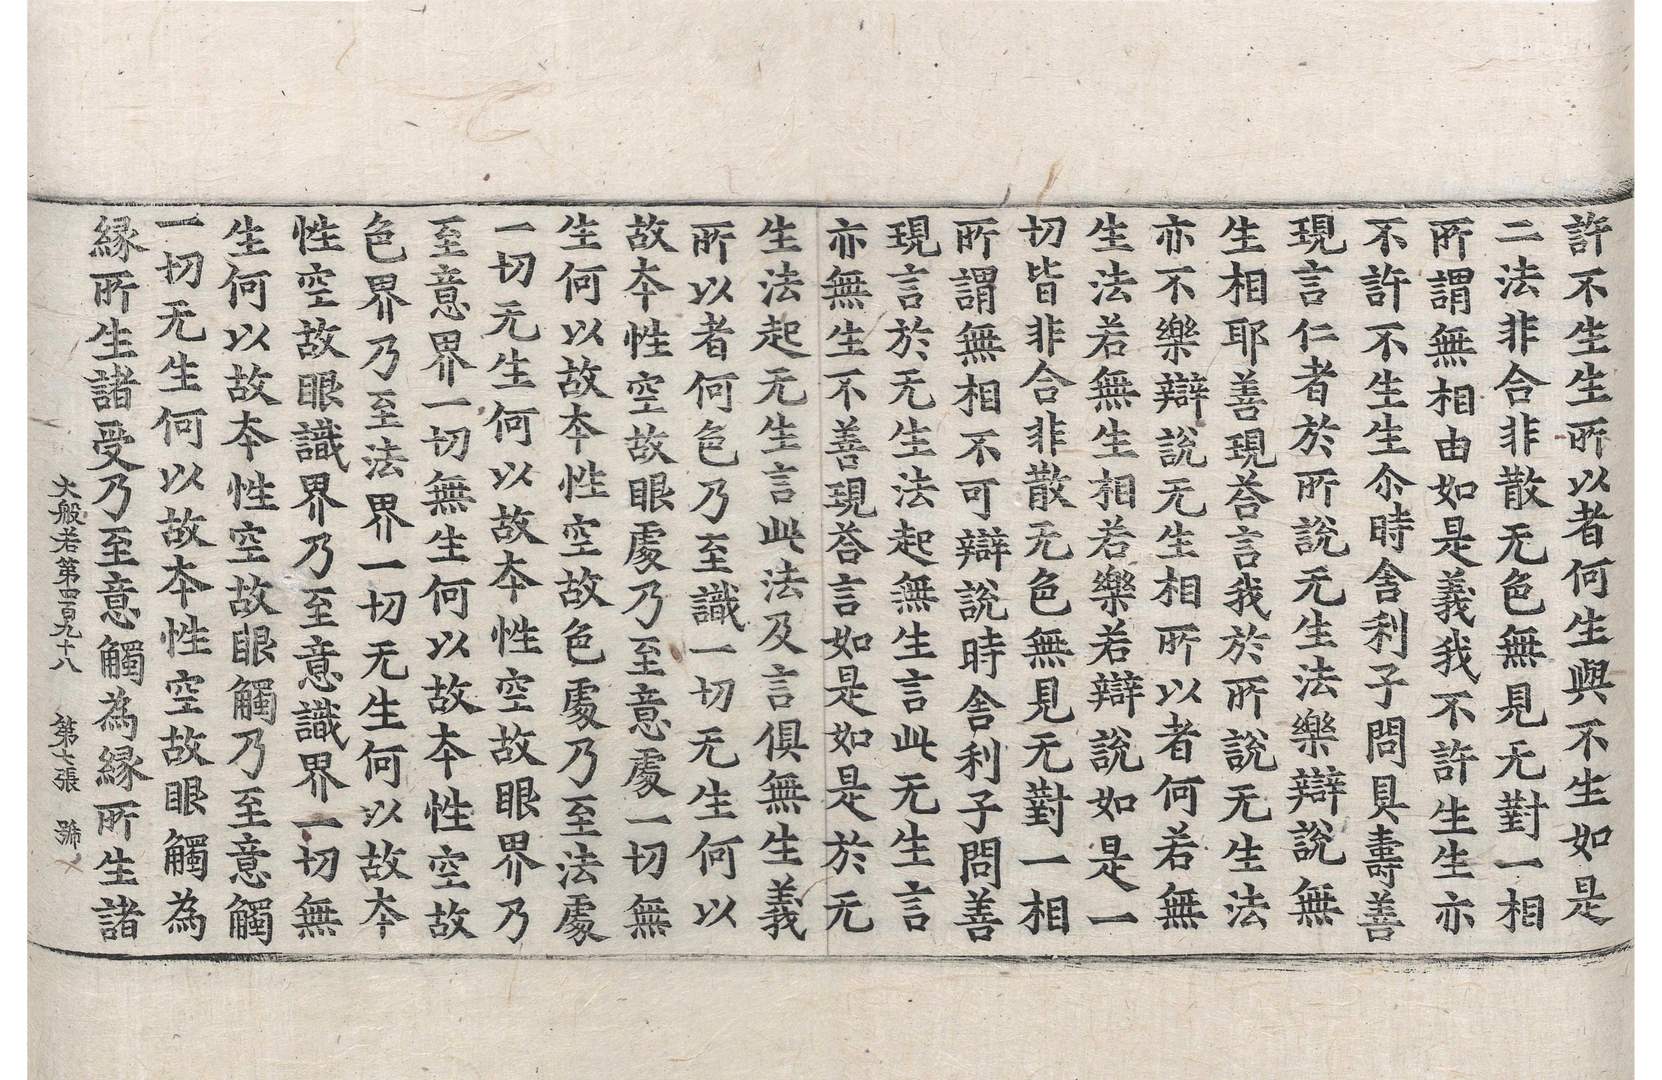 許不生生所以者何生與不生如是
二法非合非散无色無見无對一相
所謂無相由如是義我不許生生亦
不許不生生尒時舍利子問具壽善
現言仁者於所說无生法樂辯說無
生相耶善現荅言我於所說无生法
亦不樂辯說无生相所以者何若無
生法若無生相若樂若辯說如是一
切皆非合非散无色無見无對一相
所謂無相不可辯說時舍利子問善
現言於无生法起無生言此无生言
亦無生不善現荅言如是如是於无
生法起无生言此法及言俱無生義
所以者何色乃至識一切无生何以
故夲性空故眼處乃至意處一切無
生何以故夲性空故色處乃至法處
一切无生何以故夲性空故眼界乃
至意界一切無生何以故夲性空故
色界乃至法界一切无生何以故夲
性空故眼識界乃至意識界一切無
生何以故夲性空故眼觸乃至意觸
一切无生何以故夲性空故眼觸為
緣所生諸受乃至意觸為緣所生諸
大般若第四百九十八 第七張 號